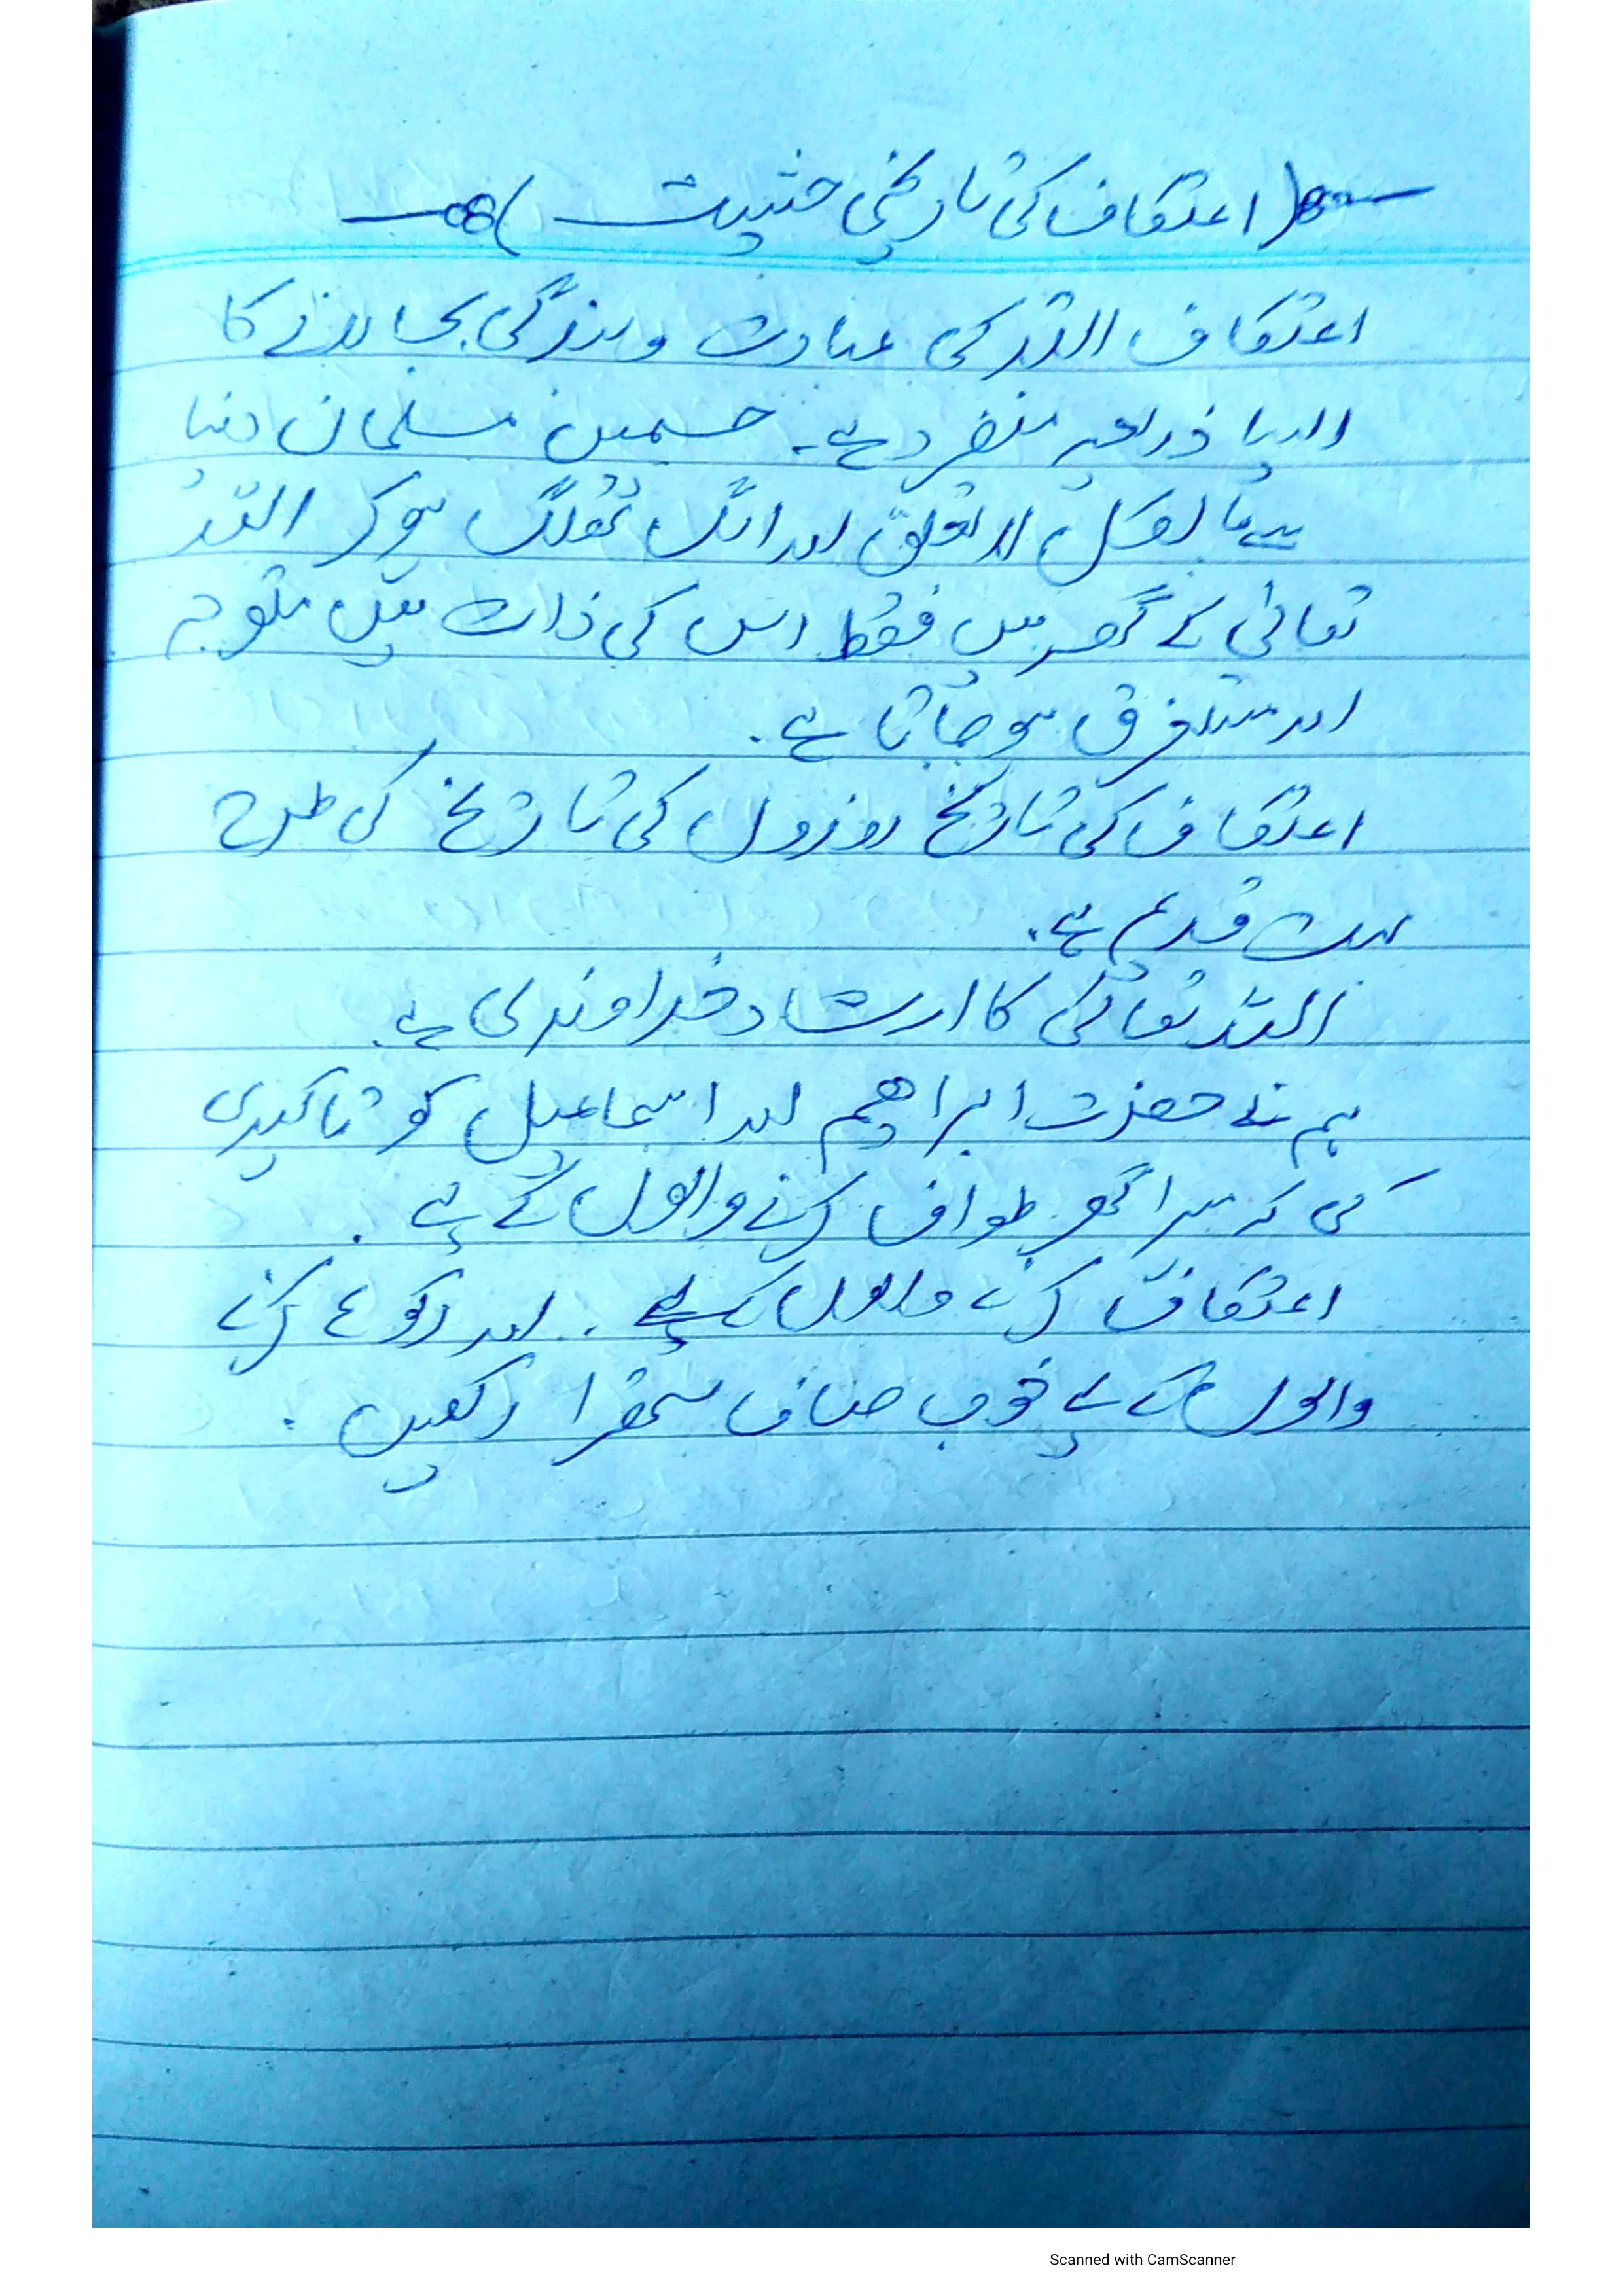 (اعتکاف کی تاریخی حثییت)
اعتکاف اللہ کی عبادت و بندگی بجا لانے کا
ایسا ذریعہ منفرد ہے۔ جسمیں مسلمان دنیا
سے بالکل لا تعلق اور الگ تھلگ ہو کر اللہ
تعالیٰ کے گھر میں فقط اس کی ذات میں متوجہ
اور مستغرق ہو جاتا ہے۔
اعتکاف کی تاریخ روزوں کی تاریخ کی طرح
بہت قدیم ہے۔
اللہ تعالیٰ کا ارشاد خداوندی ہے۔
ہم نے حضرت ابراھیم اور اسماعیل کو تاکیدی
کی کہ میرا گھر طواف کرنے والوں کے لئے۔
اعتکاف کرنے والوں کیلئے۔ اور رکوع کرنے
والوں کے لئے خوب صاف ستھرا رکھیں۔
Scanned with CamScanner